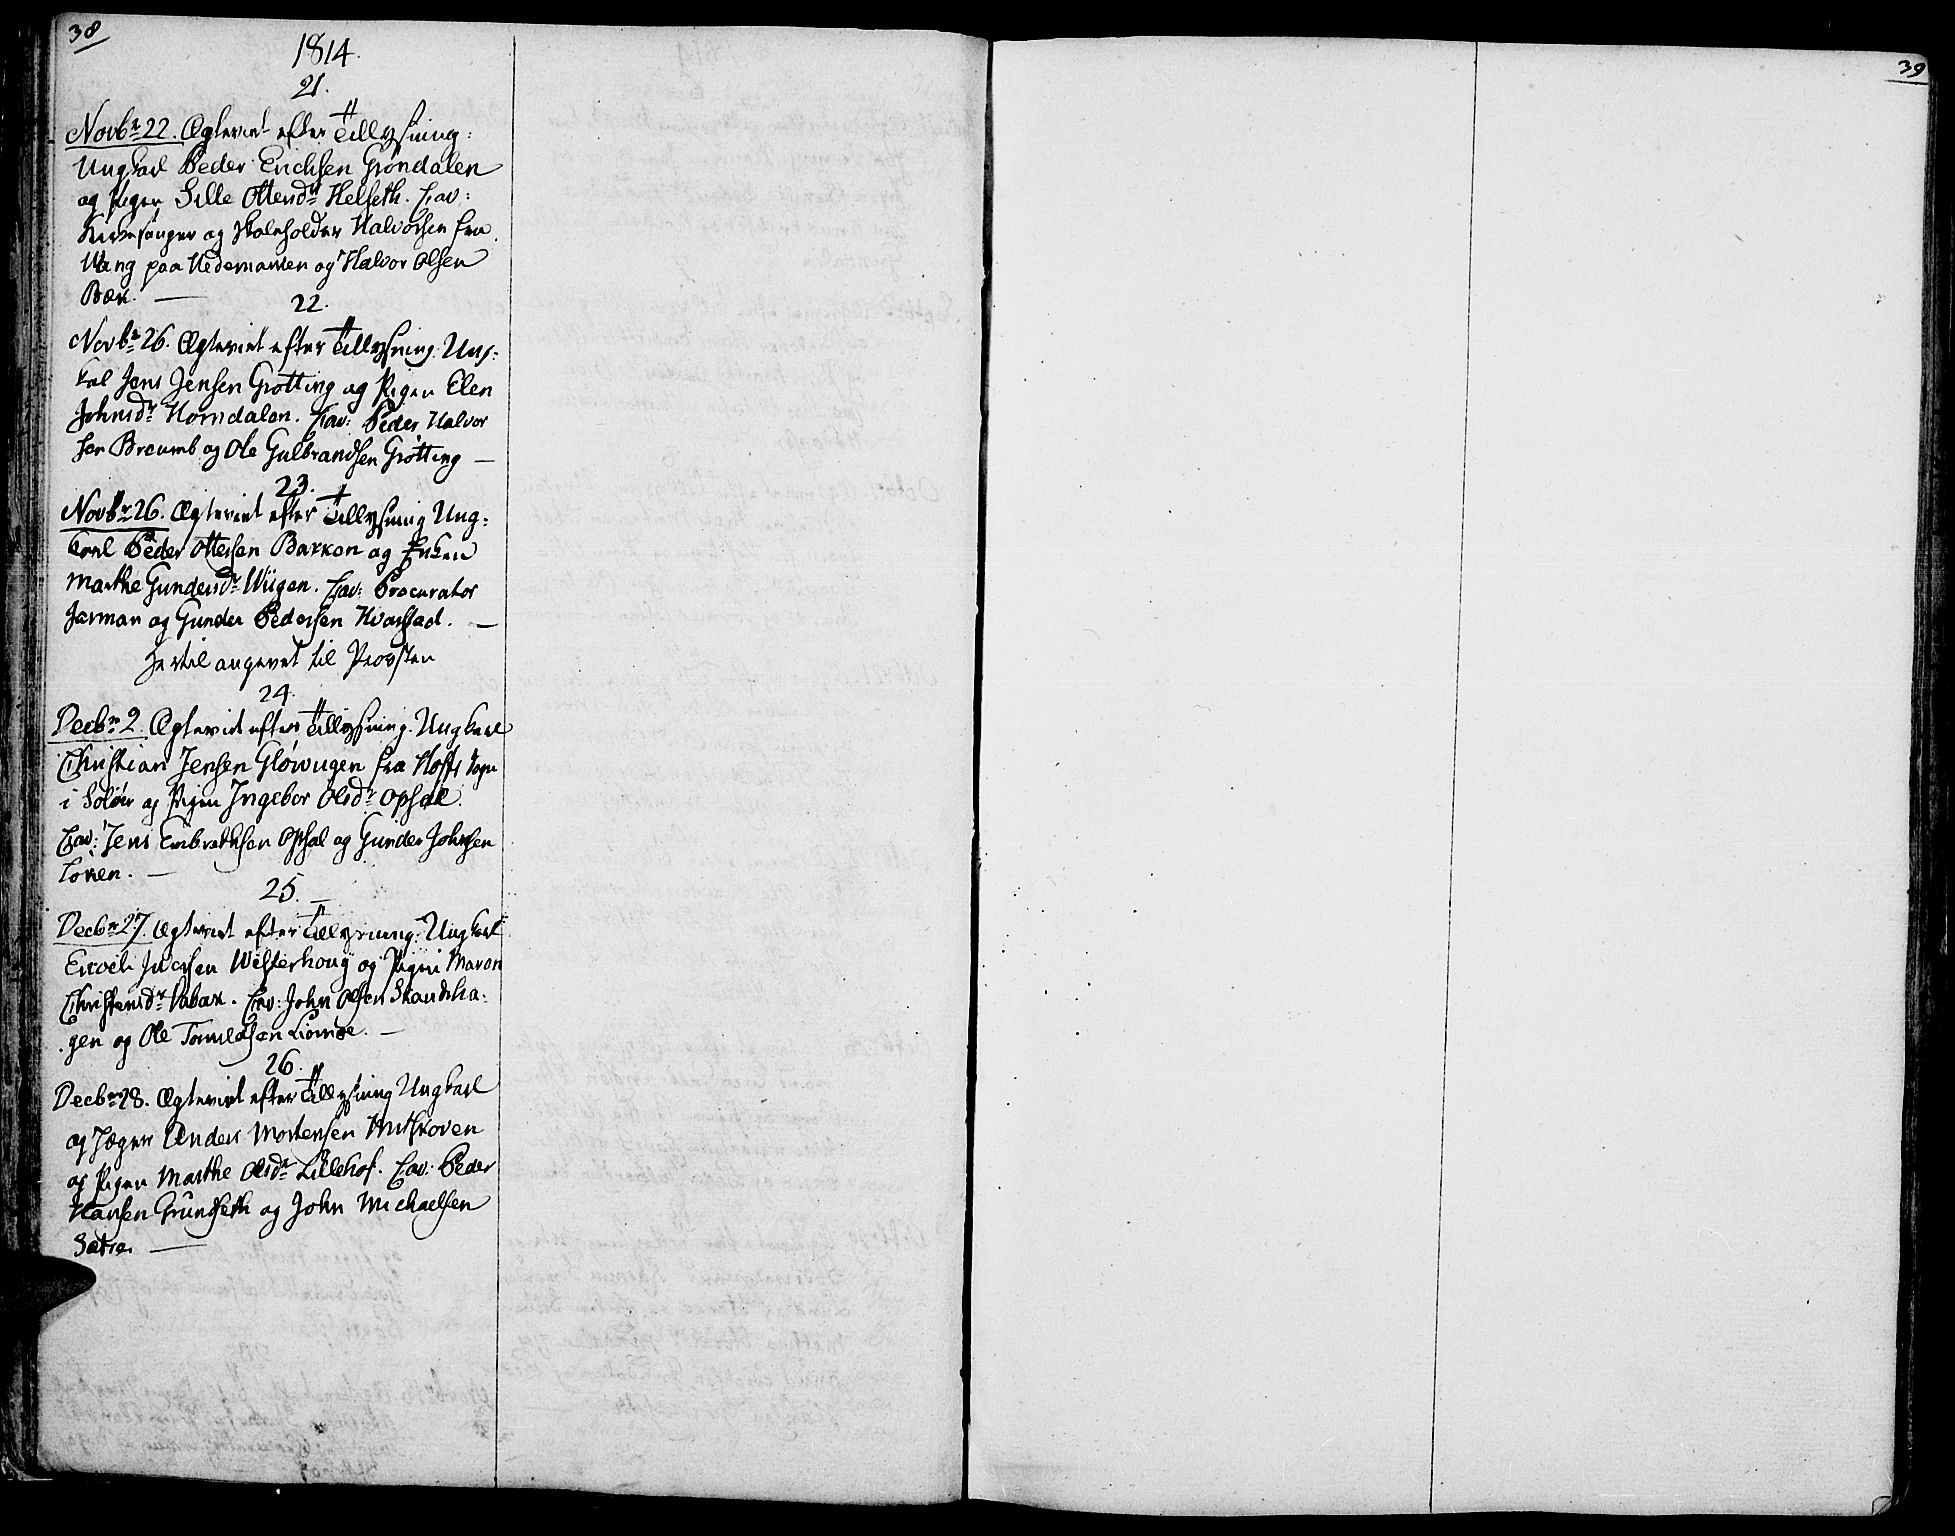 38
1814.
21.
Novbr 22. Ægteviet efter Tillysning:
Ungkarl Peder Erichsen Grøndalen
og Pigen Sille Ottersdr Helseth. Cav:
Kirkesanger og Skoleholder Halvorsen fra
Wang paa Hedemarken og Halvor Olsen
Bæk. —
22.
Novbr 26. Ægteviet efter Tillysning Ung:
karl Jens Jensen Grøtting og Pigen Elen
Johnsdr Horndalen. Cav: Peder Halvor
sen Breumb og Ole Gulbrandsen Grøtting —
23.
Novbr 26. Ægteviet efter Tillysning Ung:
karl Peder Ottersen Bakken og Enken
Marthe Gundersdr Wiigen. Cav: Procurator
Jerman og Gunder Pedersen Hvarstad. —
Hertil angivet til Provsten
24.
Decbr 2. Ægteviet efter Tillysning. Ungkarl
Christian Jensen Gløwugen fra Hoffs Sogn
i Soløer og Pigen Ingebor Olsdr Opsal.
Cav: Jens Embrethsen Opsal og Gunder Johnsen
Loken. —
25.
Decbr 27. Ægteviet efter Tillysning: Ungkarl
Enoch Westerhoug og Pigen Maren
Christensdr . Cav: John Olsen Skandsha:
gen og Ole Liomoe. —
26.
Decbr 28. Ægteviet efter Tillysning Ungkarl
og Jæger Anders Mortensen
og Pigen Marthe Olsdr Lillehof. Cav: Peder
Hansen Grundseth og John Michaelsen
Sætre. —
39